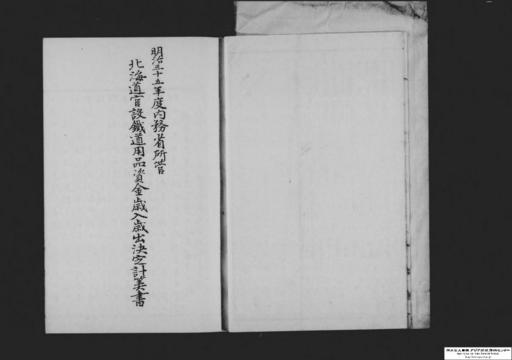 明治三十五年度内務省所管
北海道官設鐵道用品資金歳入歳出決定計算書